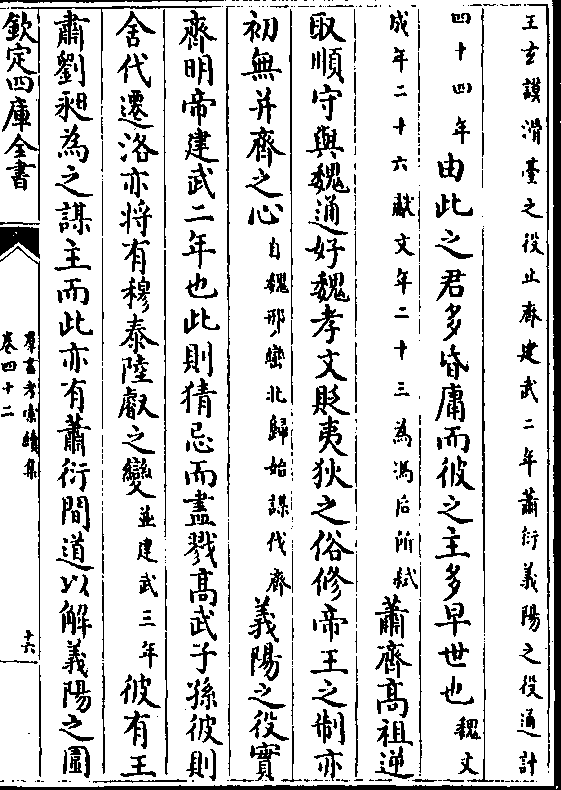 王玄謨滑臺之役止齊建武二年蕭衍義陽之役通計
四十四年由此之君多昏庸而彼之主多早世也魏文
成年二十六獻文年二十三為馮后所弑蕭齊高祖逆
取順守與魏通好魏孝文貶夷狄之俗修帝王之制亦
初無并齊之心自魏邢巒北歸始謀伐齊義陽之役實
齊明帝建武二年也此則猜忌而盡戮高武子孫彼則
舍代遷洛亦将有穆泰陸叡之變並建武三年彼有王
肅劉昶為之謀主而此亦有蕭衍間道以解義陽之圍
欽定四庫全書
羣書考索續集
卷四十二
十六